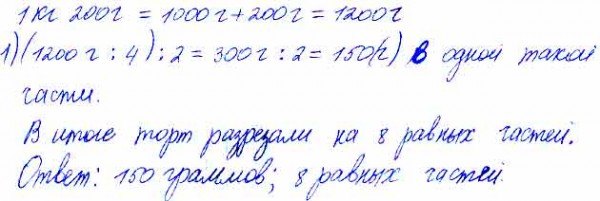 1 кг 200г = 1000г+200г = 1200г
1)(1200г : 4) : 2 = 300г : 2 = 150(г) в одной такой
части.
В итоге торт разрезали на 8 равных частей.
Ответ: 150 граммов; 8 равных частей.